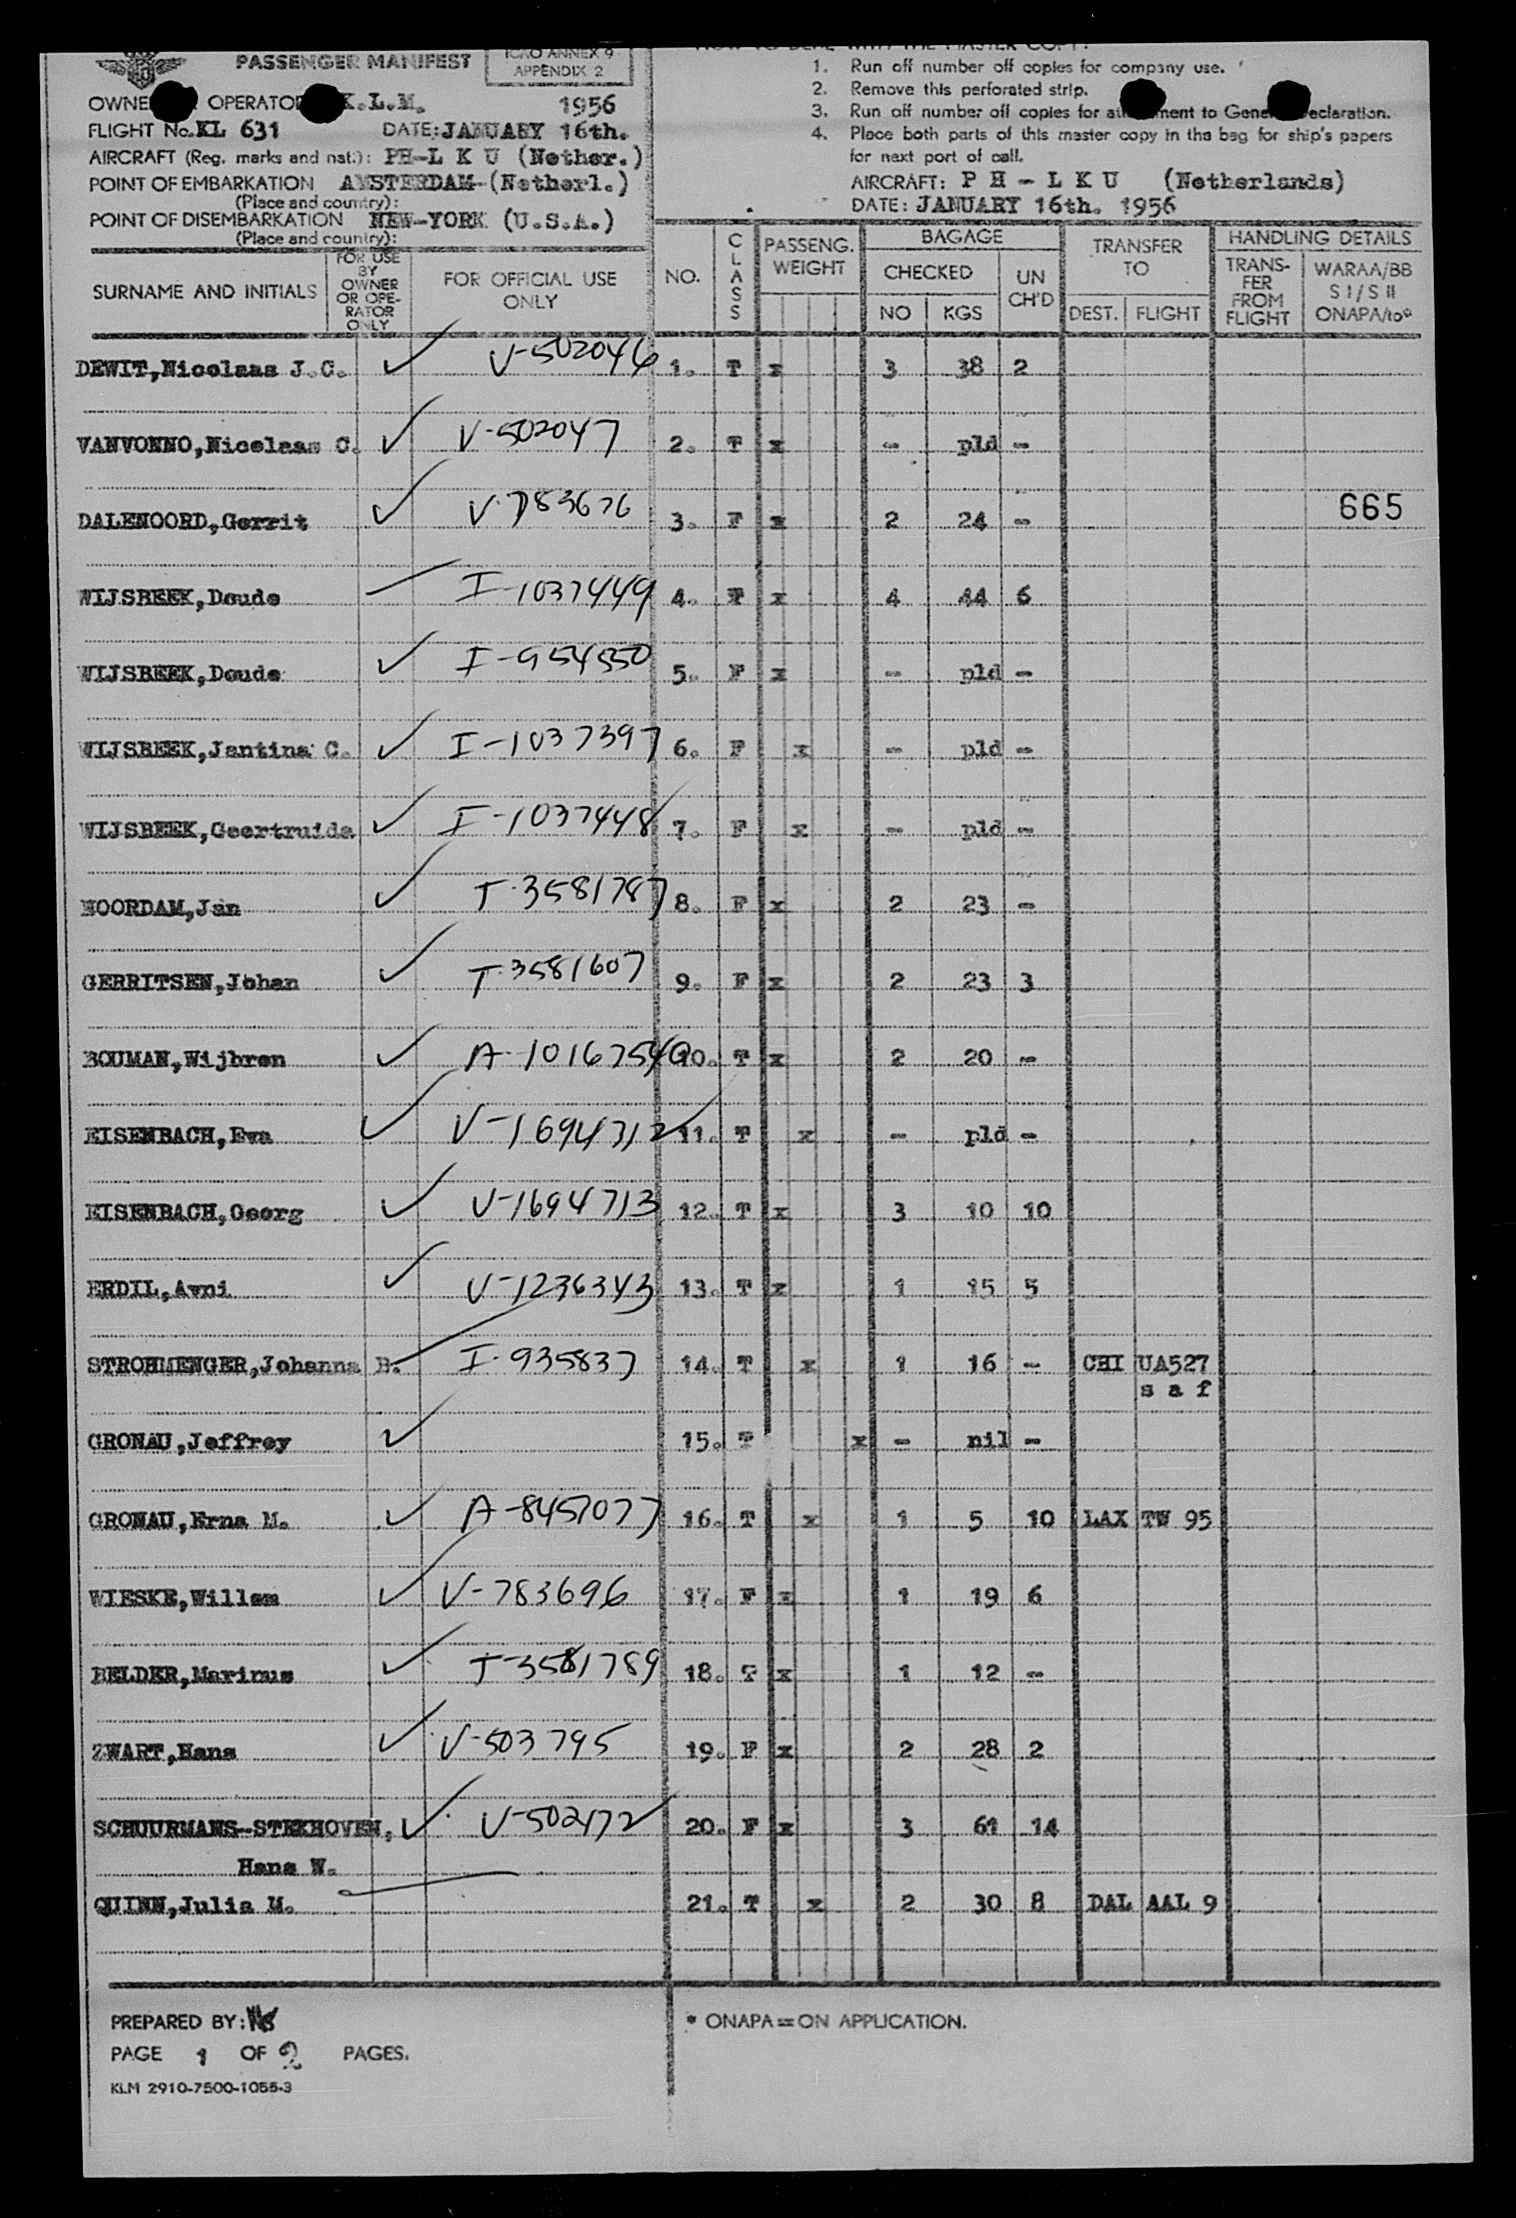 PASSENGER MANIFEST
ICAO ANNEX 9
APPENDIX 2
OPERATOR K.L.M. 1956
FLIGHT No. KL 631 DATE: JANUARY 16th.
AIRCRAFT (Reg. marks and nat.): PH-L K U (Nether.)
POINT OF EMBARKATION AMSTERDAM-(Netherl.)
(Place and country):
POINT OF DISEMBARKATION NEW-YORK (U.S.A.)
(Place and country):
1. Run off number off copies for company use.
2. Remove this perforated strip.
3. Run off number off copies for to General Declaration.
4. Place both parts of this master copy in the bag for ship's papers
for next port of call.
AIRCRAFT: P H - L K U (Netherlands)
DATE: JANUARY 16th. 1956
SURNAME AND INITIALS
FOR USE
BY
OWNER
OR OPE-
RATOR
ONLY
FOR OFFICIAL USE
ONLY
NO.
CLASS
PASSENG.
WEIGHT
BAGAGE
CHECKED
NO KGS
UN
CH'D
TRANSFER
TO
DEST. FLIGHT
HANDLING DETAILS
TRANS-
FER
FROM
FLIGHT
WARAA/BB
S I / S II
ONAPA/to*
DEWIT,Nicolaas J.C. ✓ V-502046 1. T x 3 38 2
VANVONNO,Nicolaas C. ✓ V-502047 2. T x - pld -
DALENOORD,Gerrit ✓ V-783676 3. F x 2 24 - 665
WIJSBEEK,Doude ✓ I-1037449 4. F x 4 44 6
WIJSBEEK,Doude ✓ I-954550 5. F x - pld -
WIJSBEEK,Jantina C. ✓ I-1037397 6. F x - pld -
WIJSBEEK,Geertruida ✓ I-1037448 7. F x - pld -
NOORDAM,Jan ✓ T-3581787 8. F x 2 23 -
GERRITSEN,Johan ✓ T-3581607 9. F x 2 23 3
BOUMAN,Wijbren ✓ A-10167540 10. T x 2 20 -
EISENBACH,Eva ✓ V-1694712 11. T x - pld -
EISENBACH,Georg ✓ V-1694713 12. T x 3 10 10
ERDIL,Avni ✓ V-1236343 13. T x 1 15 5
STROHMENGER,Johanna B. ✓ I-935837 14. T x 1 16 - CHI UA527
s a f
GRONAU,Jeffrey ✓ 15. T x - nil -
GRONAU,Erna M. ✓ A-8457077 16. T x 1 5 10 LAX TW 95
WIESKE,Willem ✓ V-783696 17. F x 1 19 6
BELDER,Marinus ✓ T-3581789 18. T x 1 12 -
ZWART,Hans ✓ V-503795 19. F x 2 28 2
SCHUURMANS-STEKHOVEN, ✓ V-502172 20. F x 3 61 14
Hans W.
QUINN,Julia M. 21. T x 2 30 8 DAL AAL 9
PREPARED BY:
PAGE 1 OF 2 PAGES.
KLM 2910-7500-1055-3
* ONAPA = ON APPLICATION.